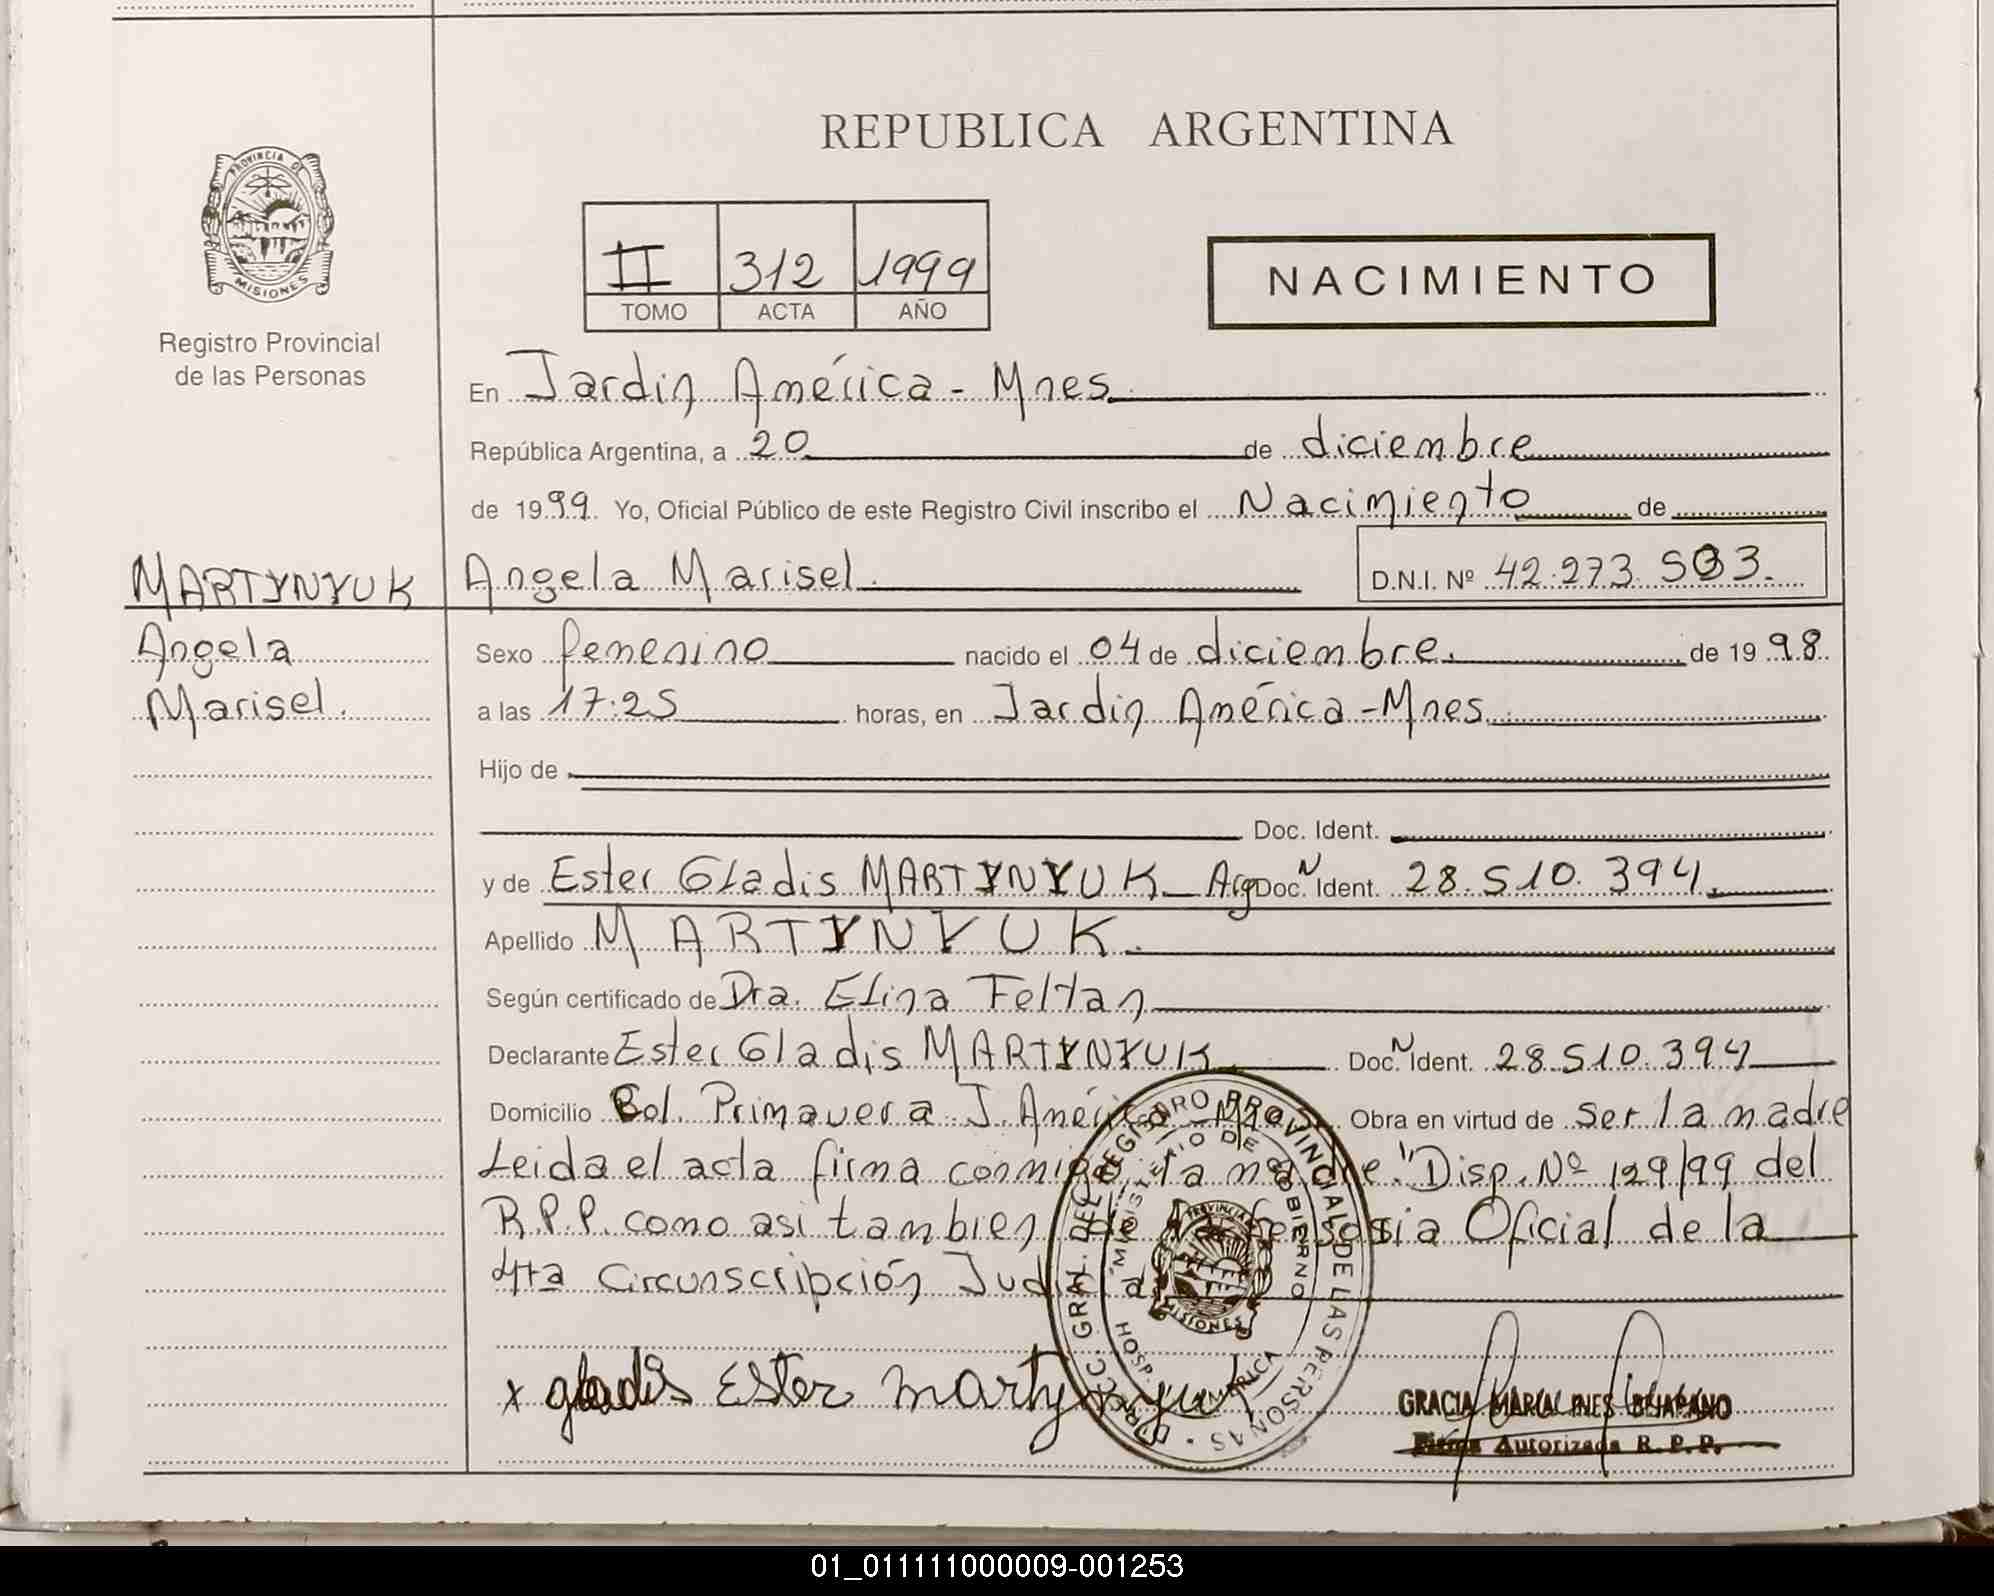 REPUBLICA ARGENTINA
PROVINCIA DE
MISIONES
Registro Provincial
de las Personas
II 312 1999
TOMO ACTA AÑO
NACIMIENTO
En Jardin América - Mnes.
República Argentina, a 20 de diciembre
de 1999. Yo, Oficial Público de este Registro Civil inscribo el Nacimiento de
MARTYNYUK Angela Marisel. D.N.I. Nº 42.273.533.
Angela
Marisel.
Sexo femenino nacido el 04 de diciembre. de 1998.
a las 17:25 horas, en Jardin América - Mnes.
Hijo de
Doc. Ident.
y de Ester Gladis MARTYNYUK - Arg Doc. N Ident. 28.510.394.
Apellido MARTYNYUK.
Según certificado de Dra. Elina Feltan
Declarante Ester Gladis MARTYNYUK Doc. N Ident. 28.510.394
Domicilio Bol. Primavera J. América Mnes. Obra en virtud de ser la madre
Leida el acta firma conmigo, la madre." Disp. Nº 129/99 del
R.P.P. como asi tambien de la Defensoria Oficial de la
4ta Circunscripción Judicial
x gladis Ester martynyuk
DIRECC. GRAL. DEL REGISTRO PROVINCIAL DE LAS PERSONAS
MINISTERIO DE GOBIERNO
PROVINCIA
MISIONES
HOSP.
GRACIA MARIA INES
Firma Autorizada R.P.P.
01_011111000009-001253